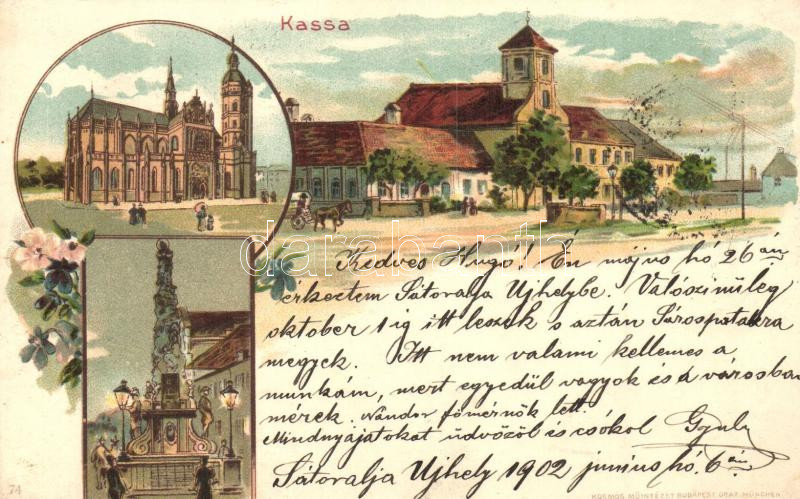 Kassa
Kedves Hugó! Én május hó 26án
érkeztem Sátoralja Ujhelybe. Valószinűleg
oktober 1ig itt leszek s aztán Sárospatakra
megyek. Itt nem valami kellemes a
munkám, mert egyedül vagyok és a városban
mérek. Nándor főmérnök lett.
Mindnyájatokat üdvözöl és csókol Gyula
Sátoralja Ujhely 1902 junius hó 6án
74
KOSMOS MŰINTÉZET BUDAPEST, GRAZ, MÜNCHEN
darabanth